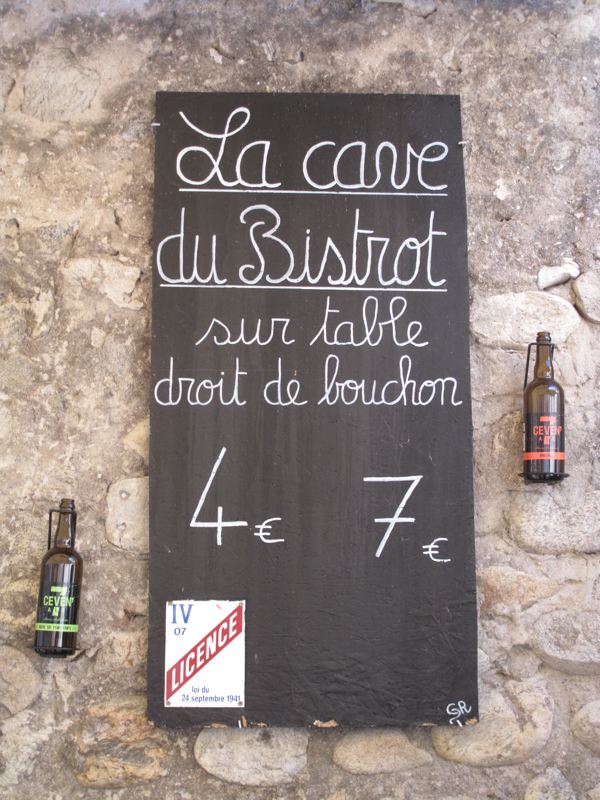 La cave
du Bistrot
sur table
droit de bouchon
4€ 7€
IV
07
LICENCE
loi du
24 septembre 1941
7
CEVEN'
7
CEVEN'